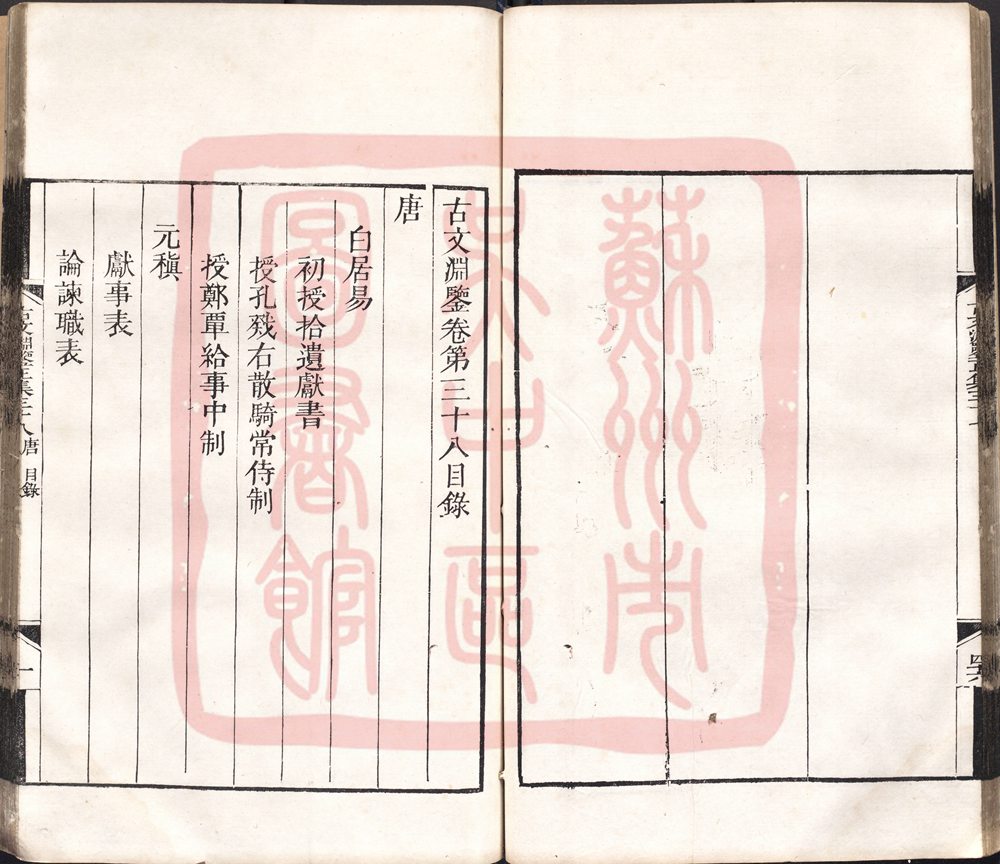 古文淵鑒卷第三十八目錄
唐
白居易
初授拾遺獻書
授孔戣右散騎常侍制
授鄭覃給事中制
元稹
獻事表
論諫職表
古文淵鑒正集卷三十八 唐 目錄
一
蘇州市
吳中區
圖書館